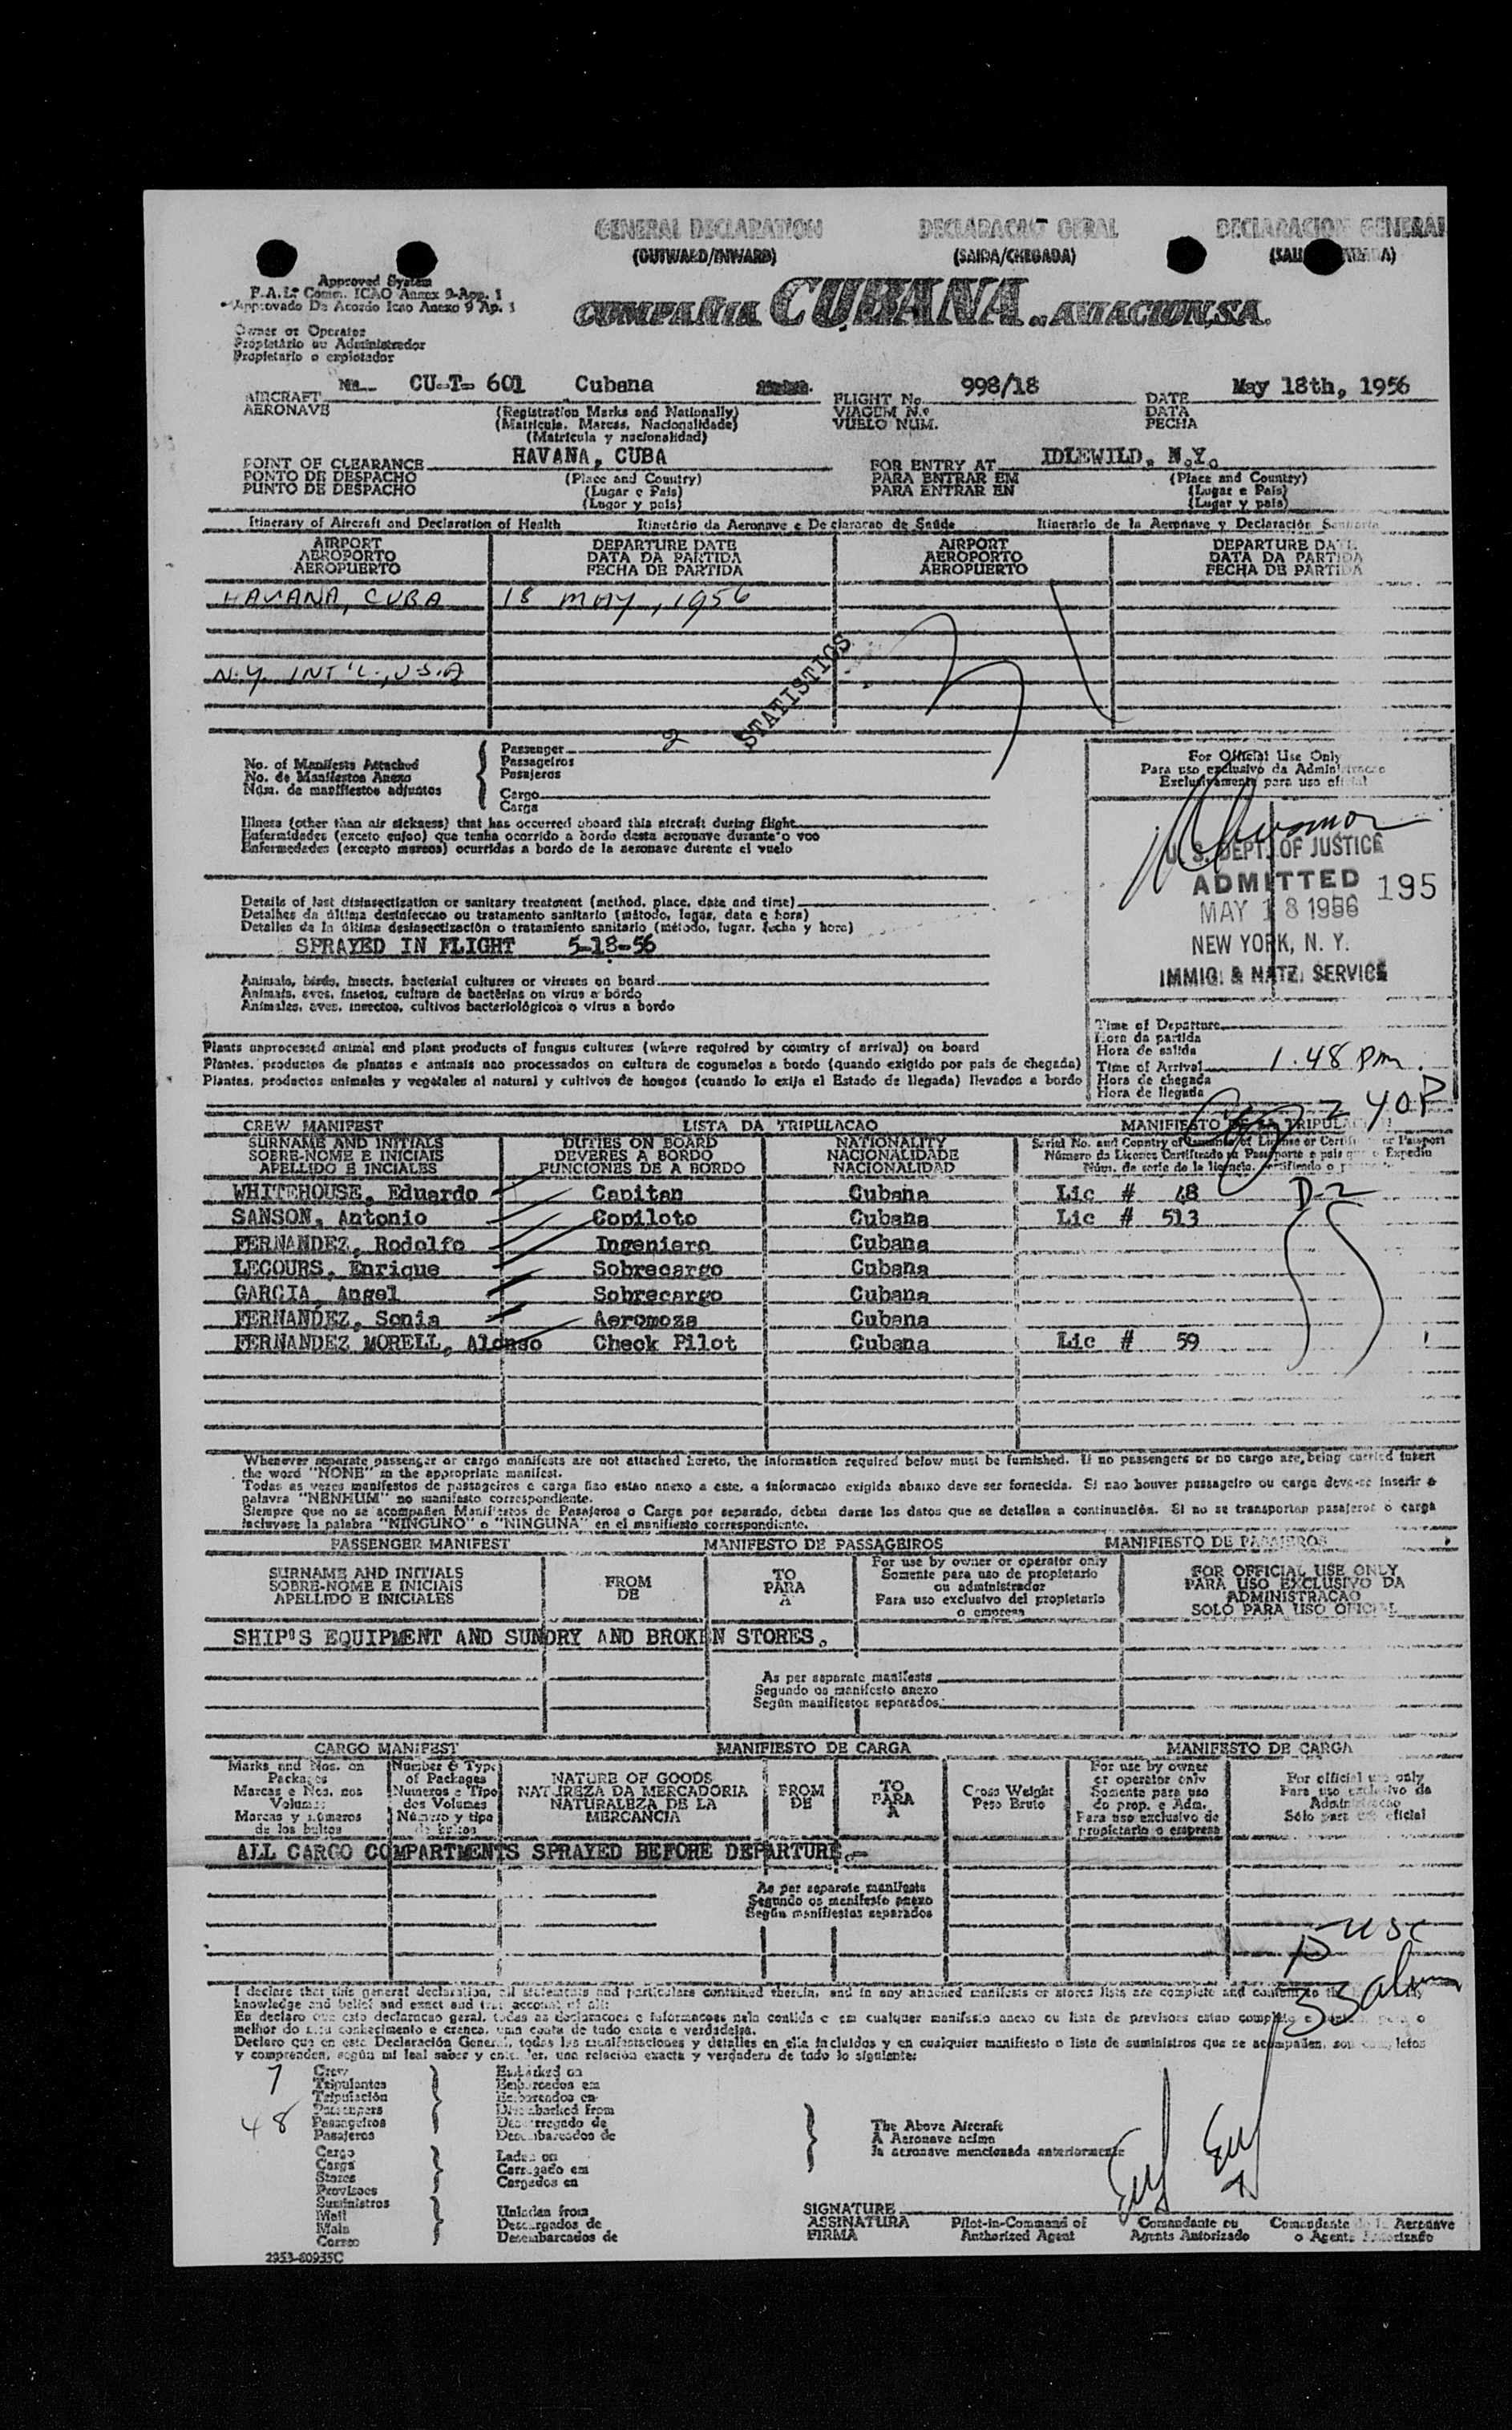 GENERAL DECLARATION DECLARACAO GERAL DECLARACION GENERAL
(OUTWARD/INWARD) (SAIDA/CHEGADA)
Approved System
F.A.L. Comm. ICAO Annex 9-App. 1
Approvado De Acordo Icao Anexo 9 Ap. 1
COMPAÑIA CUBANA DE AVIACION, S.A.
Owner or Operator
Propietário ou Administrador
Propietario o explotador
AIRCRAFT CU-T- 601 Cubana FLIGHT No. 998/18 DATE May 18th, 1956
AERONAVE (Registration Marks and Nationally) VIAGEM N.º DATA
(Matricula, Marcas, Nacionalidade) VUELO NUM. FECHA
(Matricula y nacionalidad)
POINT OF CLEARANCE HAVANA, CUBA FOR ENTRY AT IDLEWILD, N.Y.
PONTO DE DESPACHO (Place and Country) PARA ENTRAR EM (Place and Country)
PUNTO DE DESPACHO (Lugar e Pais) PARA ENTRAR EN (Lugar e Pais)
(Lugar y pais) (Lugar y pais)
Itinerary of Aircraft and Declaration of Health Itinerário da Aeronave e Declaracao de Saúde Itinerario de la Aeronave y Declaración Sanitaria
AIRPORT DEPARTURE DATE AIRPORT DEPARTURE DATE
AEROPORTO DATA DA PARTIDA AEROPORTO DATA DA PARTIDA
AEROPUERTO FECHA DE PARTIDA AEROPUERTO FECHA DE PARTIDA
HAVANA, CUBA 18 MAY, 1956
N.Y. INT'L., U.S.A
STATISTICS
Passenger 2
No. of Manifests Attached Passageiros
No. de Manifestos Anexo Pasajeros
Núm. de manifiestos adjuntos Cargo
Carga
For Official Use Only
Para uso exclusivo da Administracao
Exclusivamente para uso oficial
Illness (other than air sickness) that has occurred aboard this aircraft during flight
Enfermidades (exceto enjoo) que tenha ocorrido a bordo desta aeronave durante o voo
Enfermedades (excepto mareos) ocurridas a bordo de la aeronave durente el vuelo
U. S. DEPT. OF JUSTICE
ADMITTED 195
MAY 18 1956
NEW YORK, N. Y.
IMMIG. & NATZ. SERVICE
Details of last disinsectization or sanitary treatment (method, place, date and time)
Detalhes da última desinfeccao ou tratamento sanitario (método, lugar, data e hora)
Detalles de la última desinsectización o tratamiento sanitario (método, lugar, fecha y hora)
SPRAYED IN FLIGHT 5-18-56
Animals, birds, insects, bacterial cultures or viruses on board
Animais, aves, insetos, cultura de bactérias ou virus a bordo
Animales, aves, insectos, cultivos bacteriológicos o virus a bordo
Plants unprocessed animal and plant products of fungus cultures (where required by country of arrival) on board
Plantes, productos de plantas e animais nao processados on cultura de cogumelos a bordo (quando exigido por pais de chegada)
Plantas, productos animales y vegetales al natural y cultivos de hongos (cuando lo exija el Estado de llegada) llevados a bordo
Time of Departure
Hora da partida
Hora de salida
Time of Arrival 1.48 Pm.
Hora de chegada
Hora de llegada
2 40P
CREW MANIFEST LISTA DA TRIPULACAO MANIFIESTO DE LA TRIPULACION
SURNAME AND INITIALS DUTIES ON BOARD NATIONALITY
SOBRE-NOME E INICIAIS DEVERES A BORDO NACIONALIDADE
APELLIDO E INCIALES FUNCIONES DE A BORDO NACIONALIDAD
WHITEHOUSE, Eduardo Capitan Cubana Lic # 18 D-2
SANSON, Antonio Copiloto Cubana Lic # 513
FERNANDEZ, Rodolfo Ingeniero Cubana
LECOURS, Enrique Sobrecargo Cubana
GARCIA, Angel Sobrecargo Cubana
FERNANDEZ, Sonia Aeromoza Cubana
FERNANDEZ MORELL, Alonso Check Pilot Cubana Lic # 59
Whenever separate passenger or cargo manifests are not attached hereto, the information required below must be furnished. If no passengers or no cargo are being carried insert
the word "NONE" in the appropriate manifest.
Todas as vezes manifestos de passageiros e carga nao estao anexo a este, a informacao exigida abaixo deve ser fornecida. Si nao houver passageiro ou carga deve-se inserir a
palavra "NENHUM" no manifasto correspondiente.
Siempre que no se acompañen Manifiestos de Pasajeros o Carga por separado, deben darse los datos que se detallan a continuación. Si no se transportan pasajeros o carga
incluyase la palabra "NINGUNO" o "NINGUNA" en el manifiesto correspondiente.
PASSENGER MANIFEST MANIFESTO DE PASSAGEIROS MANIFIESTO DE PASAJEROS
SURNAME AND INITIALS FROM TO For use by owner or operator only FOR OFFICIAL USE ONLY
SOBRE-NOME E INICIAIS DE PARA Somente para uso de propietario PARA USO EXCLUSIVO DA
APELLIDO E INICIALES A ou administrador ADMINISTRACAO
Para uso exclusivo del propietario SOLO PARA USO OFICIAL
o empresa
SHIP'S EQUIPMENT AND SUNDRY AND BROKEN STORES.
As per separate manifests
Segundo os manifesto anexo
Según manifiestos separados
CARGO MANIFEST MANIFIESTO DE CARGA MANIFESTO DE CARGA
Marks and Nos. on Number & Type For use by owner
Packages of Packages NATURE OF GOODS FROM TO Gross Weight or operator only For official use only
Marcas e Nos. nos Numeros e Tipo NATUREZA DA MERCADORIA DE PARA Peso Bruto Somente para uso Para uso exclusivo da
Volumes dos Volumes NATURALEZA DE LA A do prop. e Adm. Administracao
Marcas y números Número y tipo MERCANCIA Para uso exclusivo de Sólo para uso oficial
de los bultos de bultos propietario o empresa
ALL CARGO COMPARTMENTS SPRAYED BEFORE DEPARTURE.-
As per separate manifests
Segundo os manifesto anexo
Según manifiestos separados
USC
I declare that this general declaration, all statements and particulars contained therein, and in any attached manifests or stores lists are complete and
knowledge and belief and exact and true account of all:
Eu declaro que esta declaracao geral, todas as declaracoes e informacoes nela contida e em cualquer manifasto anexo ou lista de previsoes estao
melhor do meu conhecimento e crenca, uma conta de tudo exata e verdadeisa.
Declaro que en esta Declaración General, todas las manifestaciones y detalles en ella incluidos y en cualquier manifiesto o lista de suministros que se acompañen, son completos
y comprenden, según mi leal saber y entender, una relación exacta y verdadera de todo lo siguiente:
7 Crew Embarked on
Tripulantes Embarcados em
Tripulación Embarcados en
Passengers Disembarked from
48 Passageiros
Pasajeros Desembarcados de
The Above Aircraft
A Aeronave acima
la aeronave mencionada anteriormente
Cargo Laden on
Carga Carregado em
Stores Cargados en
Provisoes
Suministros
Mail Unladen from
Mala Descargados de
Correo Desembarcados de
SIGNATURE
ASSINATURA Pilot-in-Command of Comandante ou Comandante de la Aeronave
FIRMA Authorized Agent Agente Autorizado o Agente Autorizado
2953-80935C